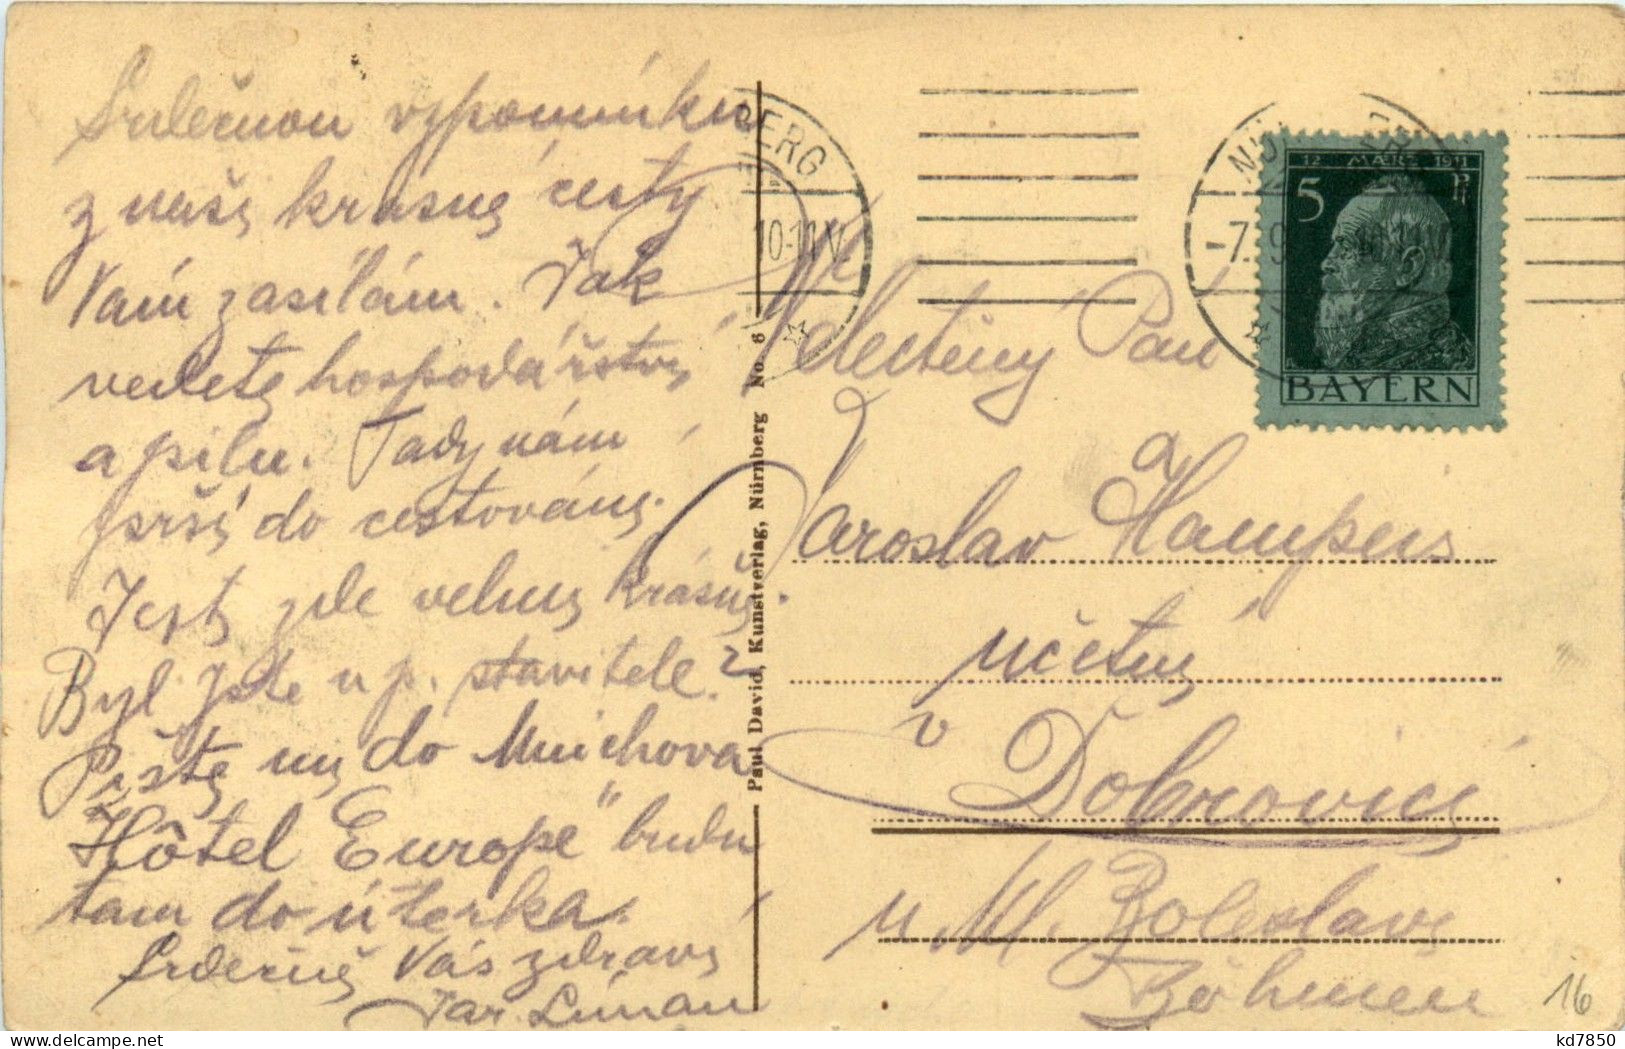 Srdečnou vzpomínku
z naší krásné cesty
Vám zasílám. Jak
vedete hospodářství
a pilu. Tady nám
prší do cestování.
Jest zde velmi krásně.
Byl jste u p. stavitele?
Pište mi do Mnichova
Hôtel Europe" budu
tam do úterka.
Srdečně Vás zdraví
Jar.
Paul David, Kunstverlag, Nürnberg No. 6
BERG
10-11V
NÜ
-7. 9
12 MÄRZ 1911
5 Pf
BAYERN
Velectěný Pan
Jaroslav
účetní
v
Dobrovici
u Ml. Boleslavi
Böhmen
16
kd7850